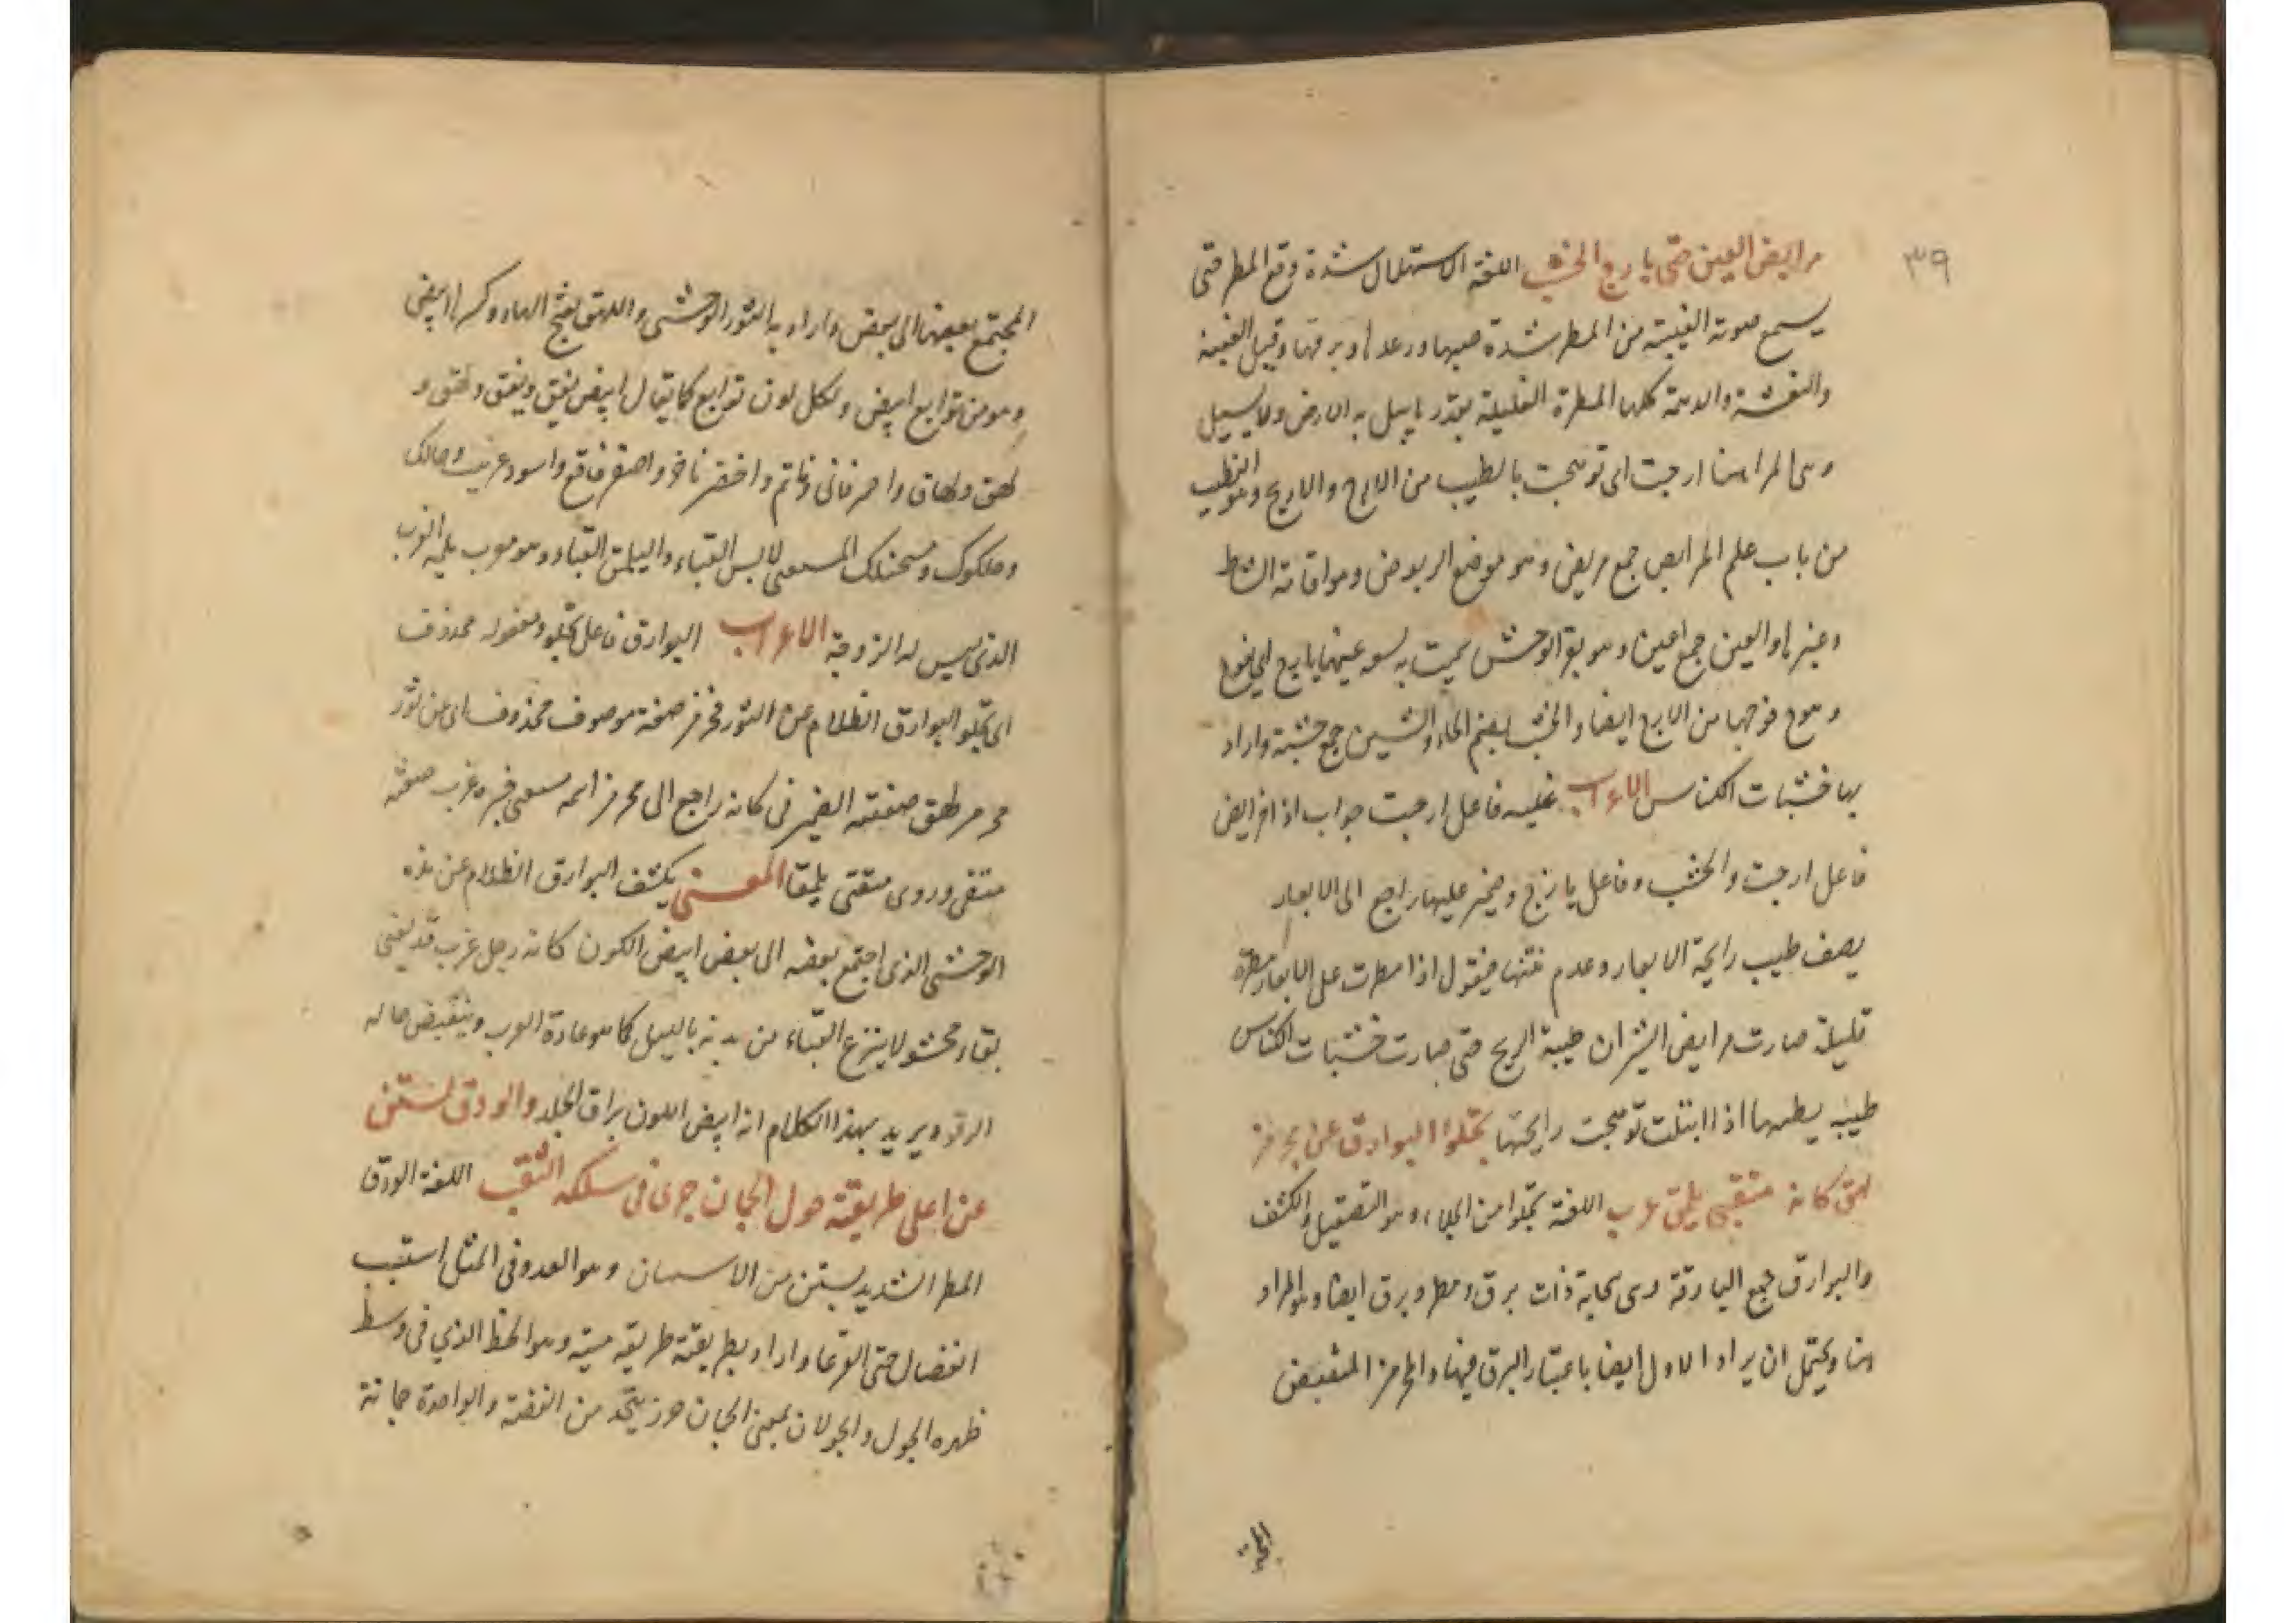 ٣٩
مرابض العين حتى يارج الخشب اللغة الاستهلال شدة وقع المطر حتى
يسمع صوته الغبية من المطر شدة صبها ورعدها وبرقها وقيل الغبية
والبغشة والديمة كلها المطرة القليلة بقدر يابيل به الارض ولا يسيل
وهى المراد هنا ارجت اى توهجت بالطيب من الارج والاريج وهو الطيب
من باب علم المرابض جمع مربض وهو موضع الربوض وهو اقامة الشاط
وغيرها والعين جمع اعين وهو بقر الوحش سميت به لسعه عينها يارج اى يفوح
وهوج فوحها من الارج ايضا والخشب بضم الخاء والشين جمع خشبة واراد
بها خشبات الكناس الاعراب غبيه فاعل ارجت جواب اذا مرابض
فاعل ارجت والخشب وفاعل يارج وضمير عليها راجع الى الابعار
يصف طيب رايحة الابعار وعدم نتنها فيقول اذا مطرت على الابعار مطرة
قليلة صارت مرابض الثيران طيبة الريح حتى صارت خشبات الكناس
طيبه يطيبها اذا ابتلت توهجت رايحتها تجلوا البوارق عن مجرمز
لهق كانه متقبى يلمق عزب اللغة تجلوا من الجلاء وهو التصقيل والكشف
والبوارق جمع البارقة وهى سحابة ذات برق ومطر وبرق ايضا وهو المراد
هنا ويحتمل ان يراد الاول ايضا باعتبار البرق فيها والمجرمز المنقبض
المجتمع بعضها الى بعض واراد به الثور الوحشى واللهق بفتح الهاء وكسرها ابيض
وهو من توابع ابيض ولكل لون توابع كما يقال ابيض يقق ويقق ولهق و
لهق ولهاق واحمر قانى وقاتم واخضر ناضر واصفر فاقع واسود غربيب وحالك
وحلكوك ومسحنكك المتقبى لابس القباء واليلمق القباء وهو معرب يلمه العزب
الذى ليس له الزوجة الاعراب البوارق فاعل تجلو ومفعوله محذوف
اى تجلو البوارق الظلام عن الثور مجرمز صفة موصوف محذوف اى عن ثور
مجرمز لهق صفته الضمير فى كانه راجع الى مجرمز اسمه متقبى خبره عزب صفة
متقبى وروى متقبى يلمقا المعنى يكشف البوارق الظلام عن هذه
الوحشى الذى اجتمع بعضه الى بعض ابيض اللون كانه رجل عزب قد يقبى
بقباء محشو لا ينزع القباء من بدنه بالليل كما هو عادة العرب وينقبض حاله
الرقد ويريد بهذا الكلام انه ابيض اللون براق الجلد والودق يستن
عن اعلى طريقته حول الجمان جرى فى سلكه الثقب اللغة الودق
المطر الشديد يستن من الاستنان وهو العدو وفى المثل استنت
الفصال حتى القرعا واراد بطريقته طريقه متنه وهو الخط الذي فى وسط
ظهره الجول والجولان بمعنى الجمان حرز يتخذ من الفضة والواحدة جمانة